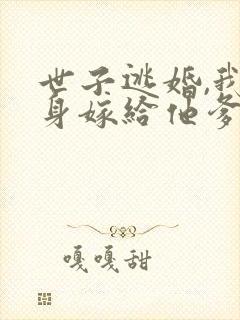 世子逃婚,我
身嫁给他爹
嘎嘎甜